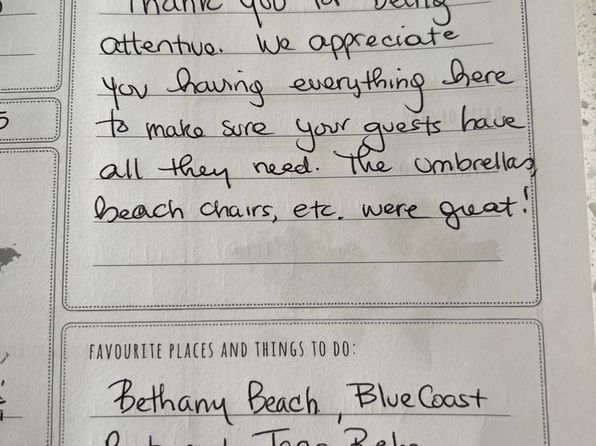 Thank you for being
attentive. We appreciate
you having everything here
to make sure your guests have
all they need. The umbrellas,
beach chairs, etc. were great!
FAVOURITE PLACES AND THINGS TO DO:
Bethany Beach, Blue Coast